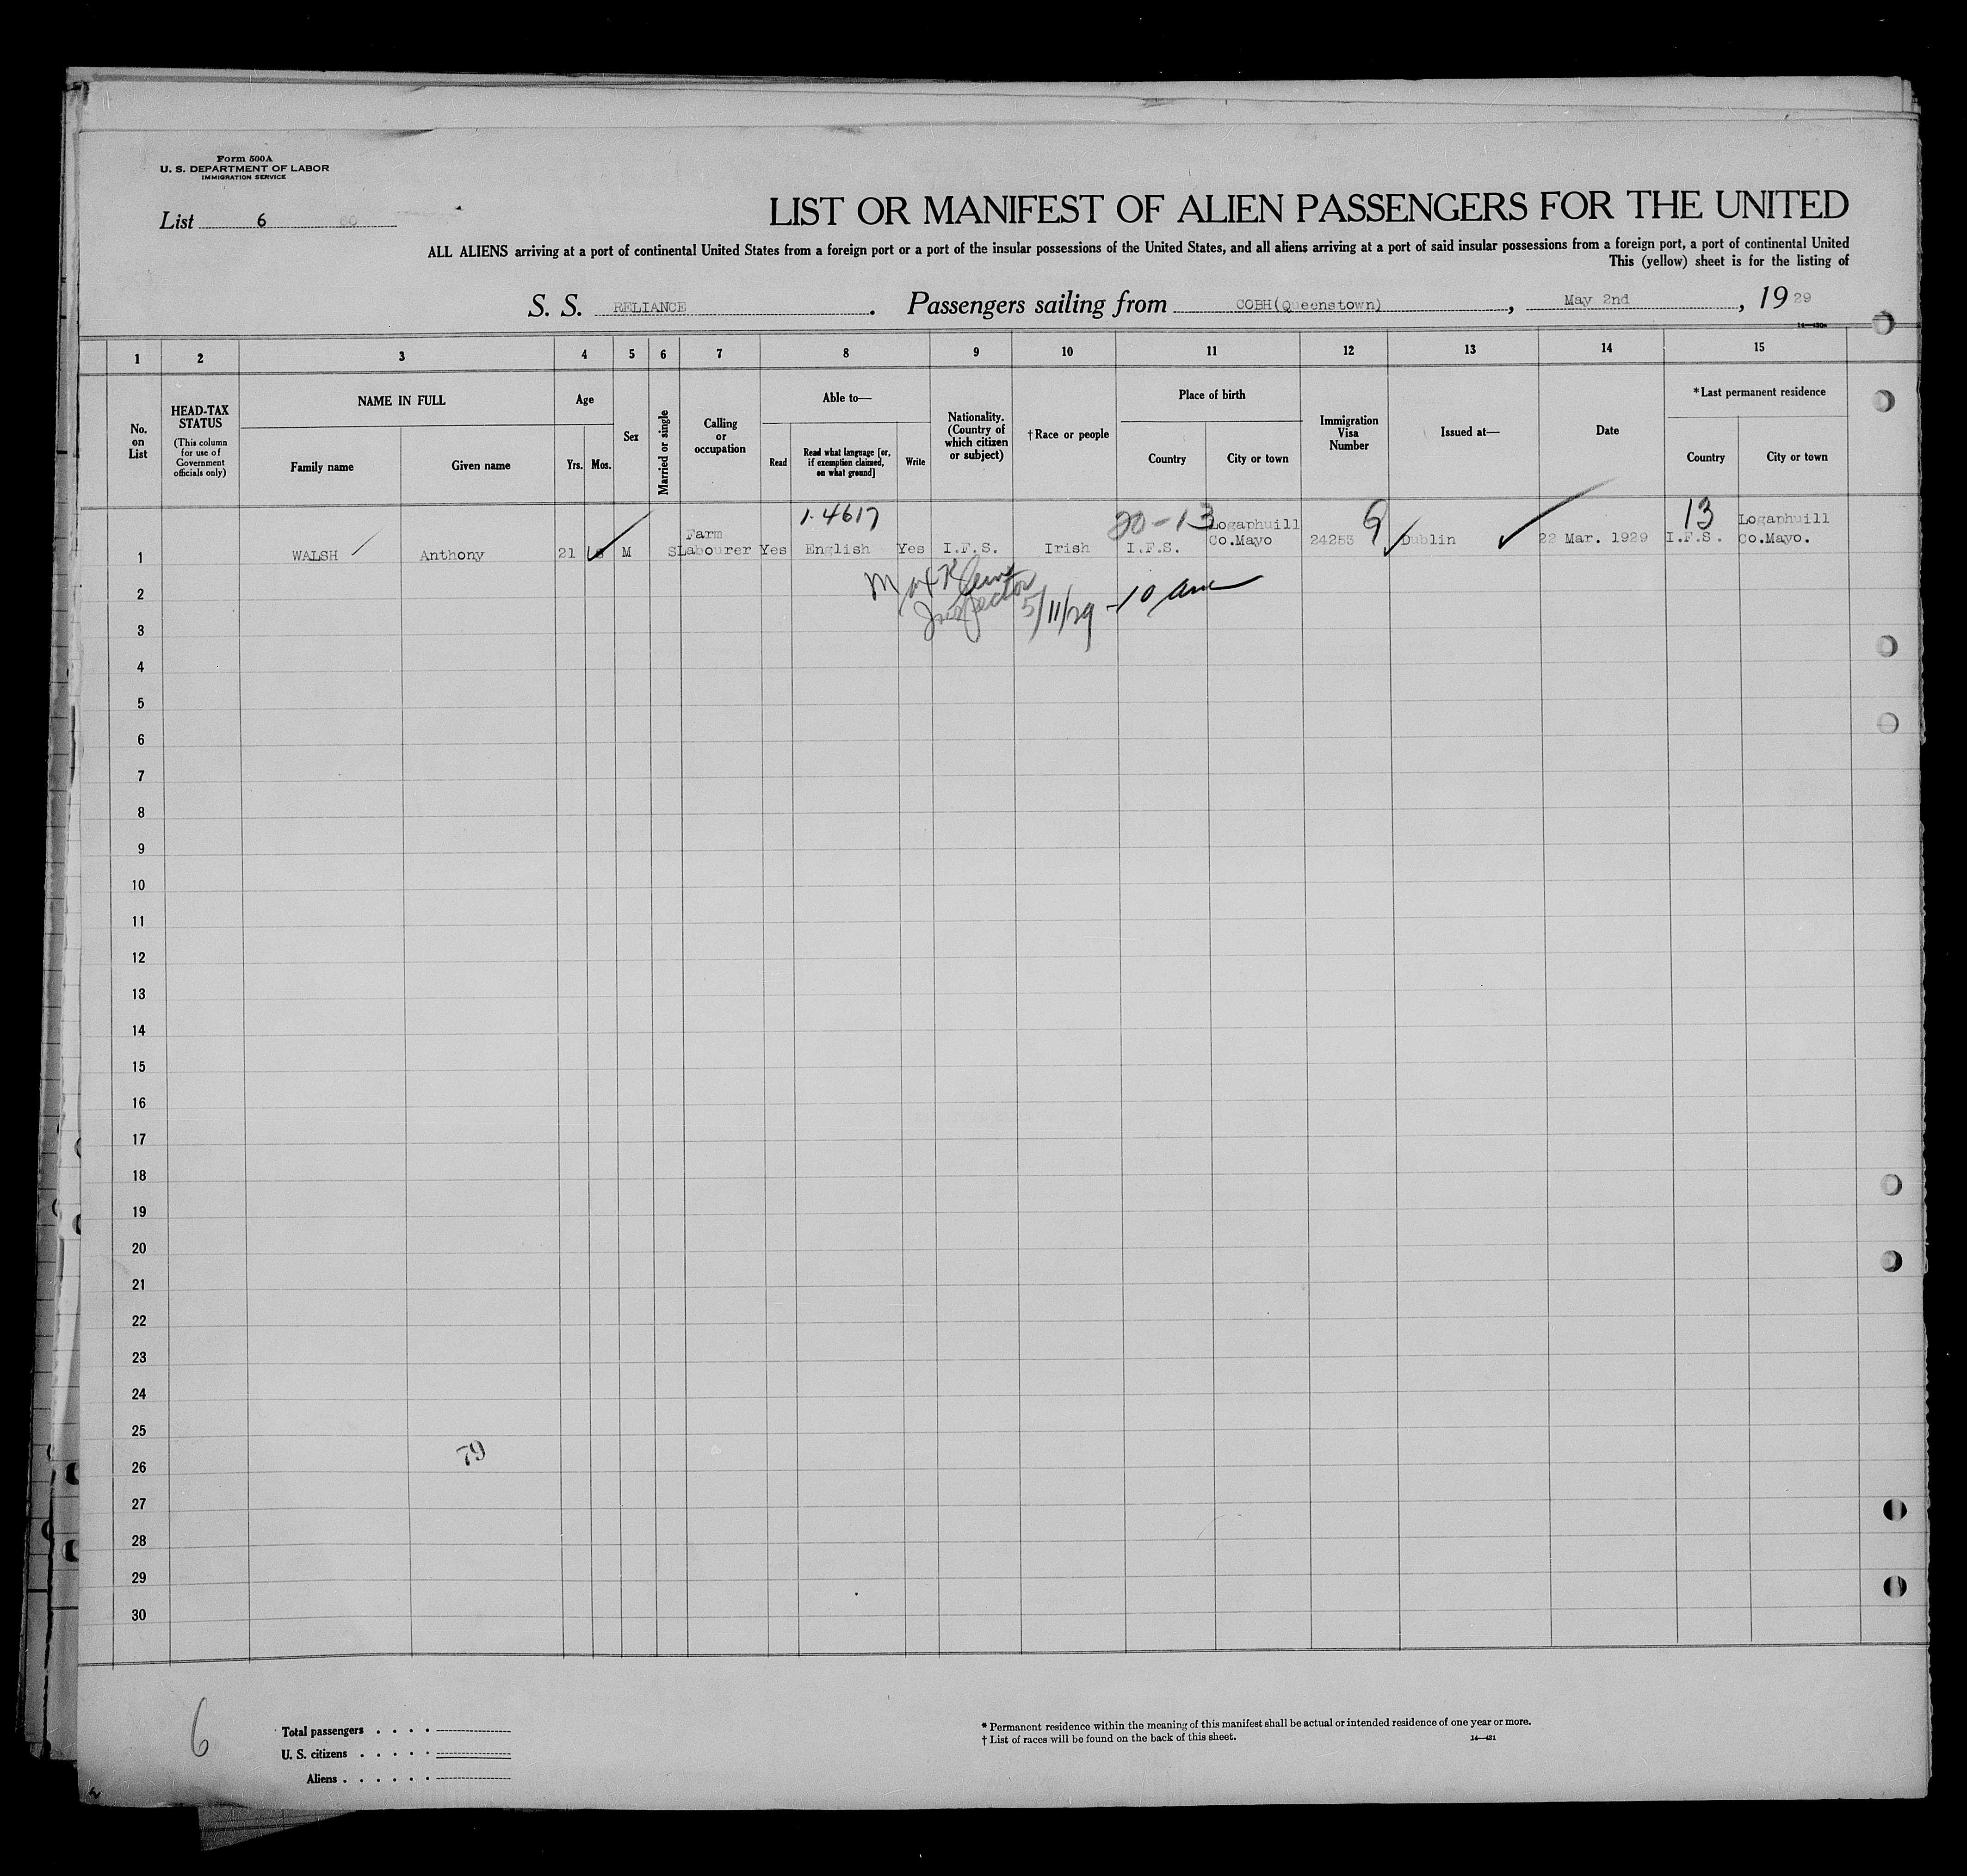 Form 500A
U. S. DEPARTMENT OF LABOR
IMMIGRATION SERVICE
List 6
LIST OR MANIFEST OF ALIEN PASSENGERS FOR THE UNITED
ALL ALIENS arriving at a port of continental United States from a foreign port or a port of the insular possessions of the United States, and all aliens arriving at a port of said insular possessions from a foreign port, a port of continental United
This (yellow) sheet is for the listing of
S. S. RELIANCE . Passengers sailing from COBH(Queenstown) , May 2nd , 19 29
1 2 3 4 5 6 7 8 9 10 11 12 13 14 15
No. on List
HEAD-TAX STATUS
(This column for use of Government officials only)
NAME IN FULL
Family name
Given name
Age
Yrs.
Mos.
Sex
Married or single
Calling or occupation
Able to—
Read
Read what language [or, if exemption claimed, on what ground]
Write
Nationality. (Country of which citizen or subject)
†Race or people
Place of birth
Country
City or town
Immigration Visa Number
Issued at—
Date
*Last permanent residence
Country
City or town
1-4617 20-13 9 13
Farm Logaphuill Logaphuill
1 WALSH Anthony 21 M S Labourer Yes English Yes I.F.S. Irish I.F.S. Co.Mayo 24253 Dublin 22 Mar. 1929 I.F.S. Co.Mayo.
Inspector 5/11/29 - 10 am
2
3
4
5
6
7
8
9
10
11
12
13
14
15
16
17
18
19
20
21
22
23
24
25
79
26
27
28
29
30
6
Total passengers . . . .
U. S. citizens . . . . .
Aliens . . . . . .
* Permanent residence within the meaning of this manifest shall be actual or intended residence of one year or more.
† List of races will be found on the back of this sheet.
14—421